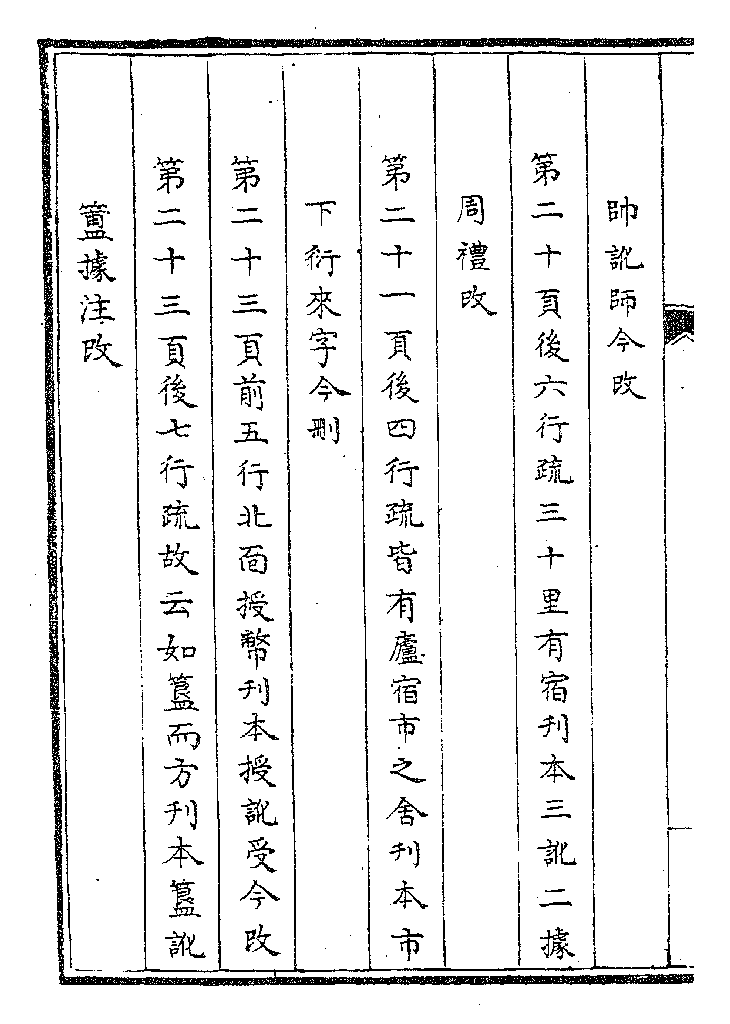 帥訛師今改
第二十頁後六行疏三十里有宿刊本三訛二據
周禮改
第二十一頁後四行疏皆有廬宿市之舍刊本市
下衍來字今刪
第二十三頁前五行北面授幣刊本授訛受今改
第二十三頁後七行疏故云如簋而方刊本簋訛
簠據注改